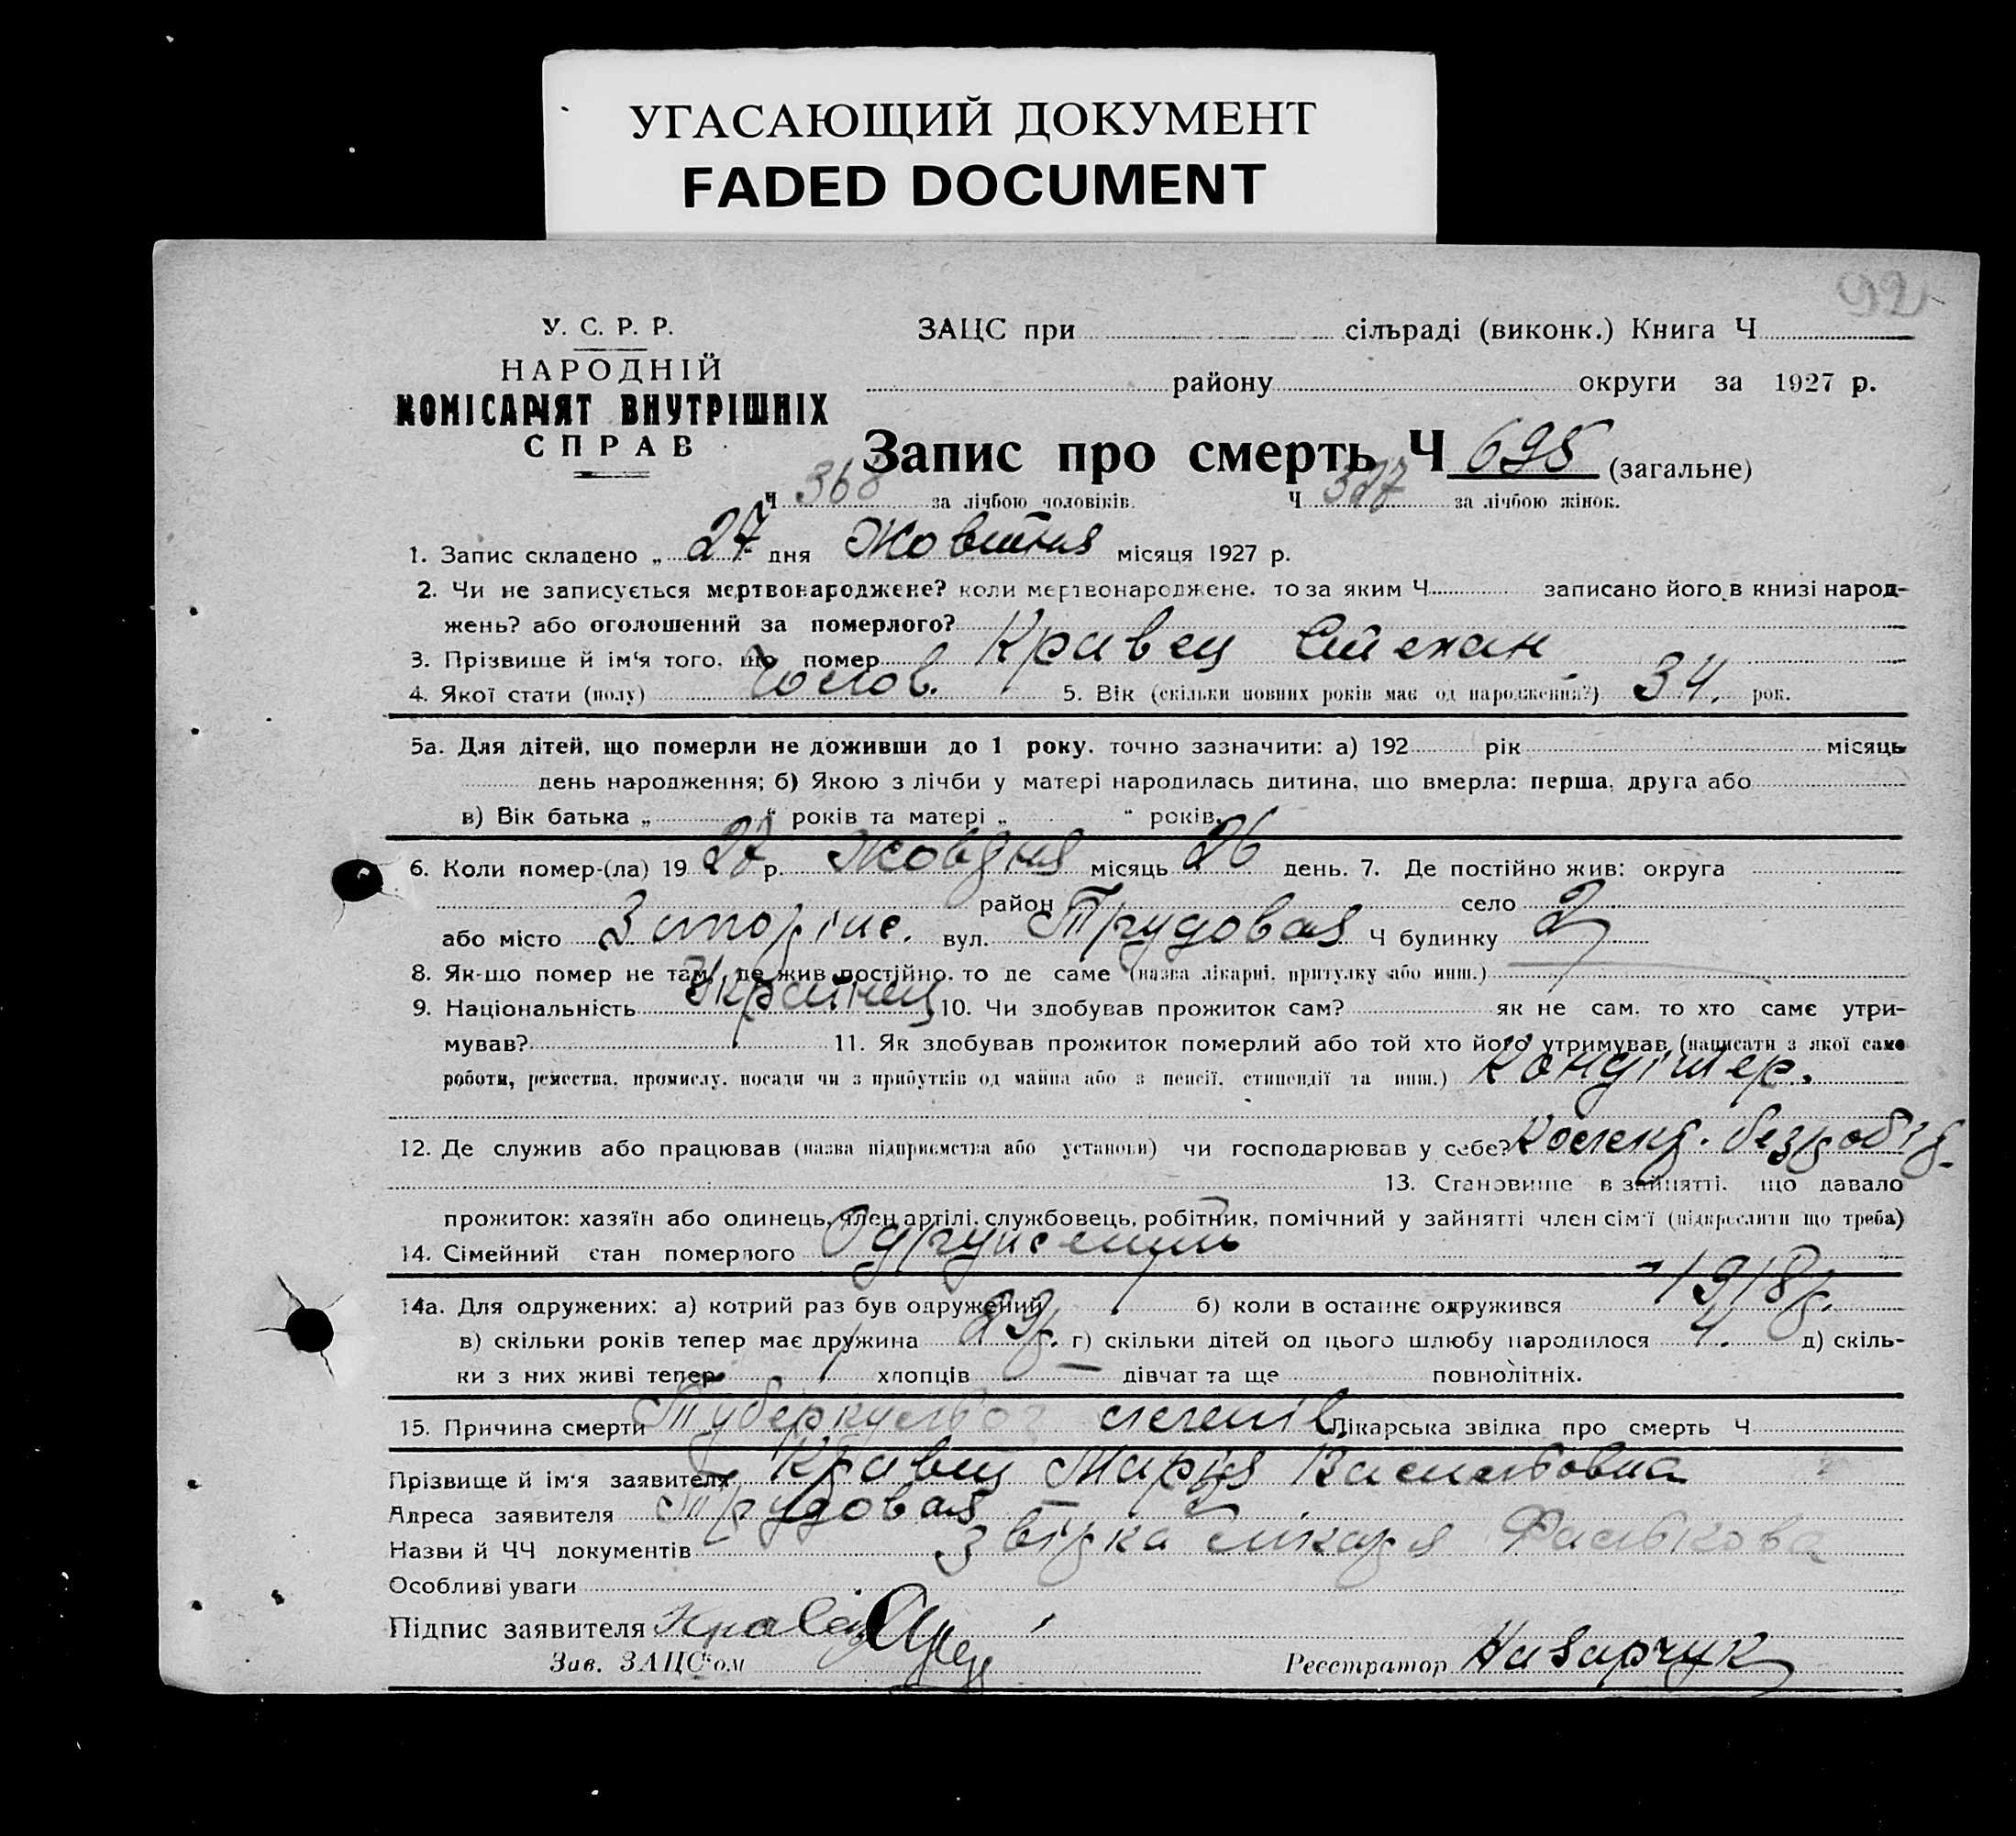 УГАСАЮЩИЙ ДОКУМЕНТ
FADED DOCUMENT
92
У. С. Р. Р.
НАРОДНІЙ
КОМІСАРІЯТ ВНУТРІШНІХ
СПРАВ
ЗАЦС при сільраді (виконк.) Книга Ч
району округи за 1927 р.
Запис про смерть Ч 695 (загальне)
Ч 368 за лічбою чоловіків. Ч 327 за лічбою жінок.
1. Запис складено „ 27 дня Жовтня місяця 1927 р.
2. Чи не записується мертвонароджене? коли мертвонароджене, то за яким Ч записано його в книзі народ-
жень? або оголошений за померлого?
3. Прізвище й ім'я того, що помер Кравец Степан
4. Якої стати (полу) Чолов. 5. Вік (скільки повних років має од народження?) 34. рок.
5а. Для дітей, що померли не доживши до 1 року, точно зазначити: а) 192 рік місяць
день народження; б) Якою з лічби у матері народилась дитина, що вмерла: перша, друга або
в) Вік батька „ “ років та матері „ “ років.
6. Коли помер-(ла) 19 27 р. Жовдня місяць 26 день. 7. Де постійно жив: округа
район село
або місто Зиторіис. вул. Трудовая Ч будинку 2
8. Як-що помер не там, де жив постійно, то де саме (назва лікарні, притулку або инш.)
9. Національність Украінец 10. Чи здобував прожиток сам? як не сам, то хто саме утри-
мував? 11. Як здобував прожиток померлий або той хто його утримував (написати з якої саме
роботи, ремества, промислу, посади чи з прибутків од майна або з пенсії, стипендії та инш.) Кондітер.
12. Де служив або працював (назва підприємства або установи) чи господарював у себе? Колект. безробіт.
13. Становище в зайнятті, що давало
прожиток: хазяїн або одинець, член артілі, службовець, робітник, помічний у зайнятті член сім'ї (підкреслити що треба)
14. Сімейний стан померлого Одружений
14а. Для одружених: а) котрий раз був одружений б) коли в останнє одружився 1918 р.
в) скільки років тепер має дружина 29 р. г) скільки дітей од цього шлюбу народилося 4. д) скіль-
ки з них живі тепер 1 хлопців — дівчат та ще повнолітніх.
15. Причина смерти Туберкульоз легенів Лікарська звідка про смерть Ч
Прізвище й ім'я заявителя Кравец Марія Васильовна
Адреса заявителя Трудовая 2
Назви й ЧЧ документів Звідка лікаря Фалькова
Особливі уваги
Підпис заявителя Кравец
Зав. ЗАЦС'ом
Реєстратор Назарчук